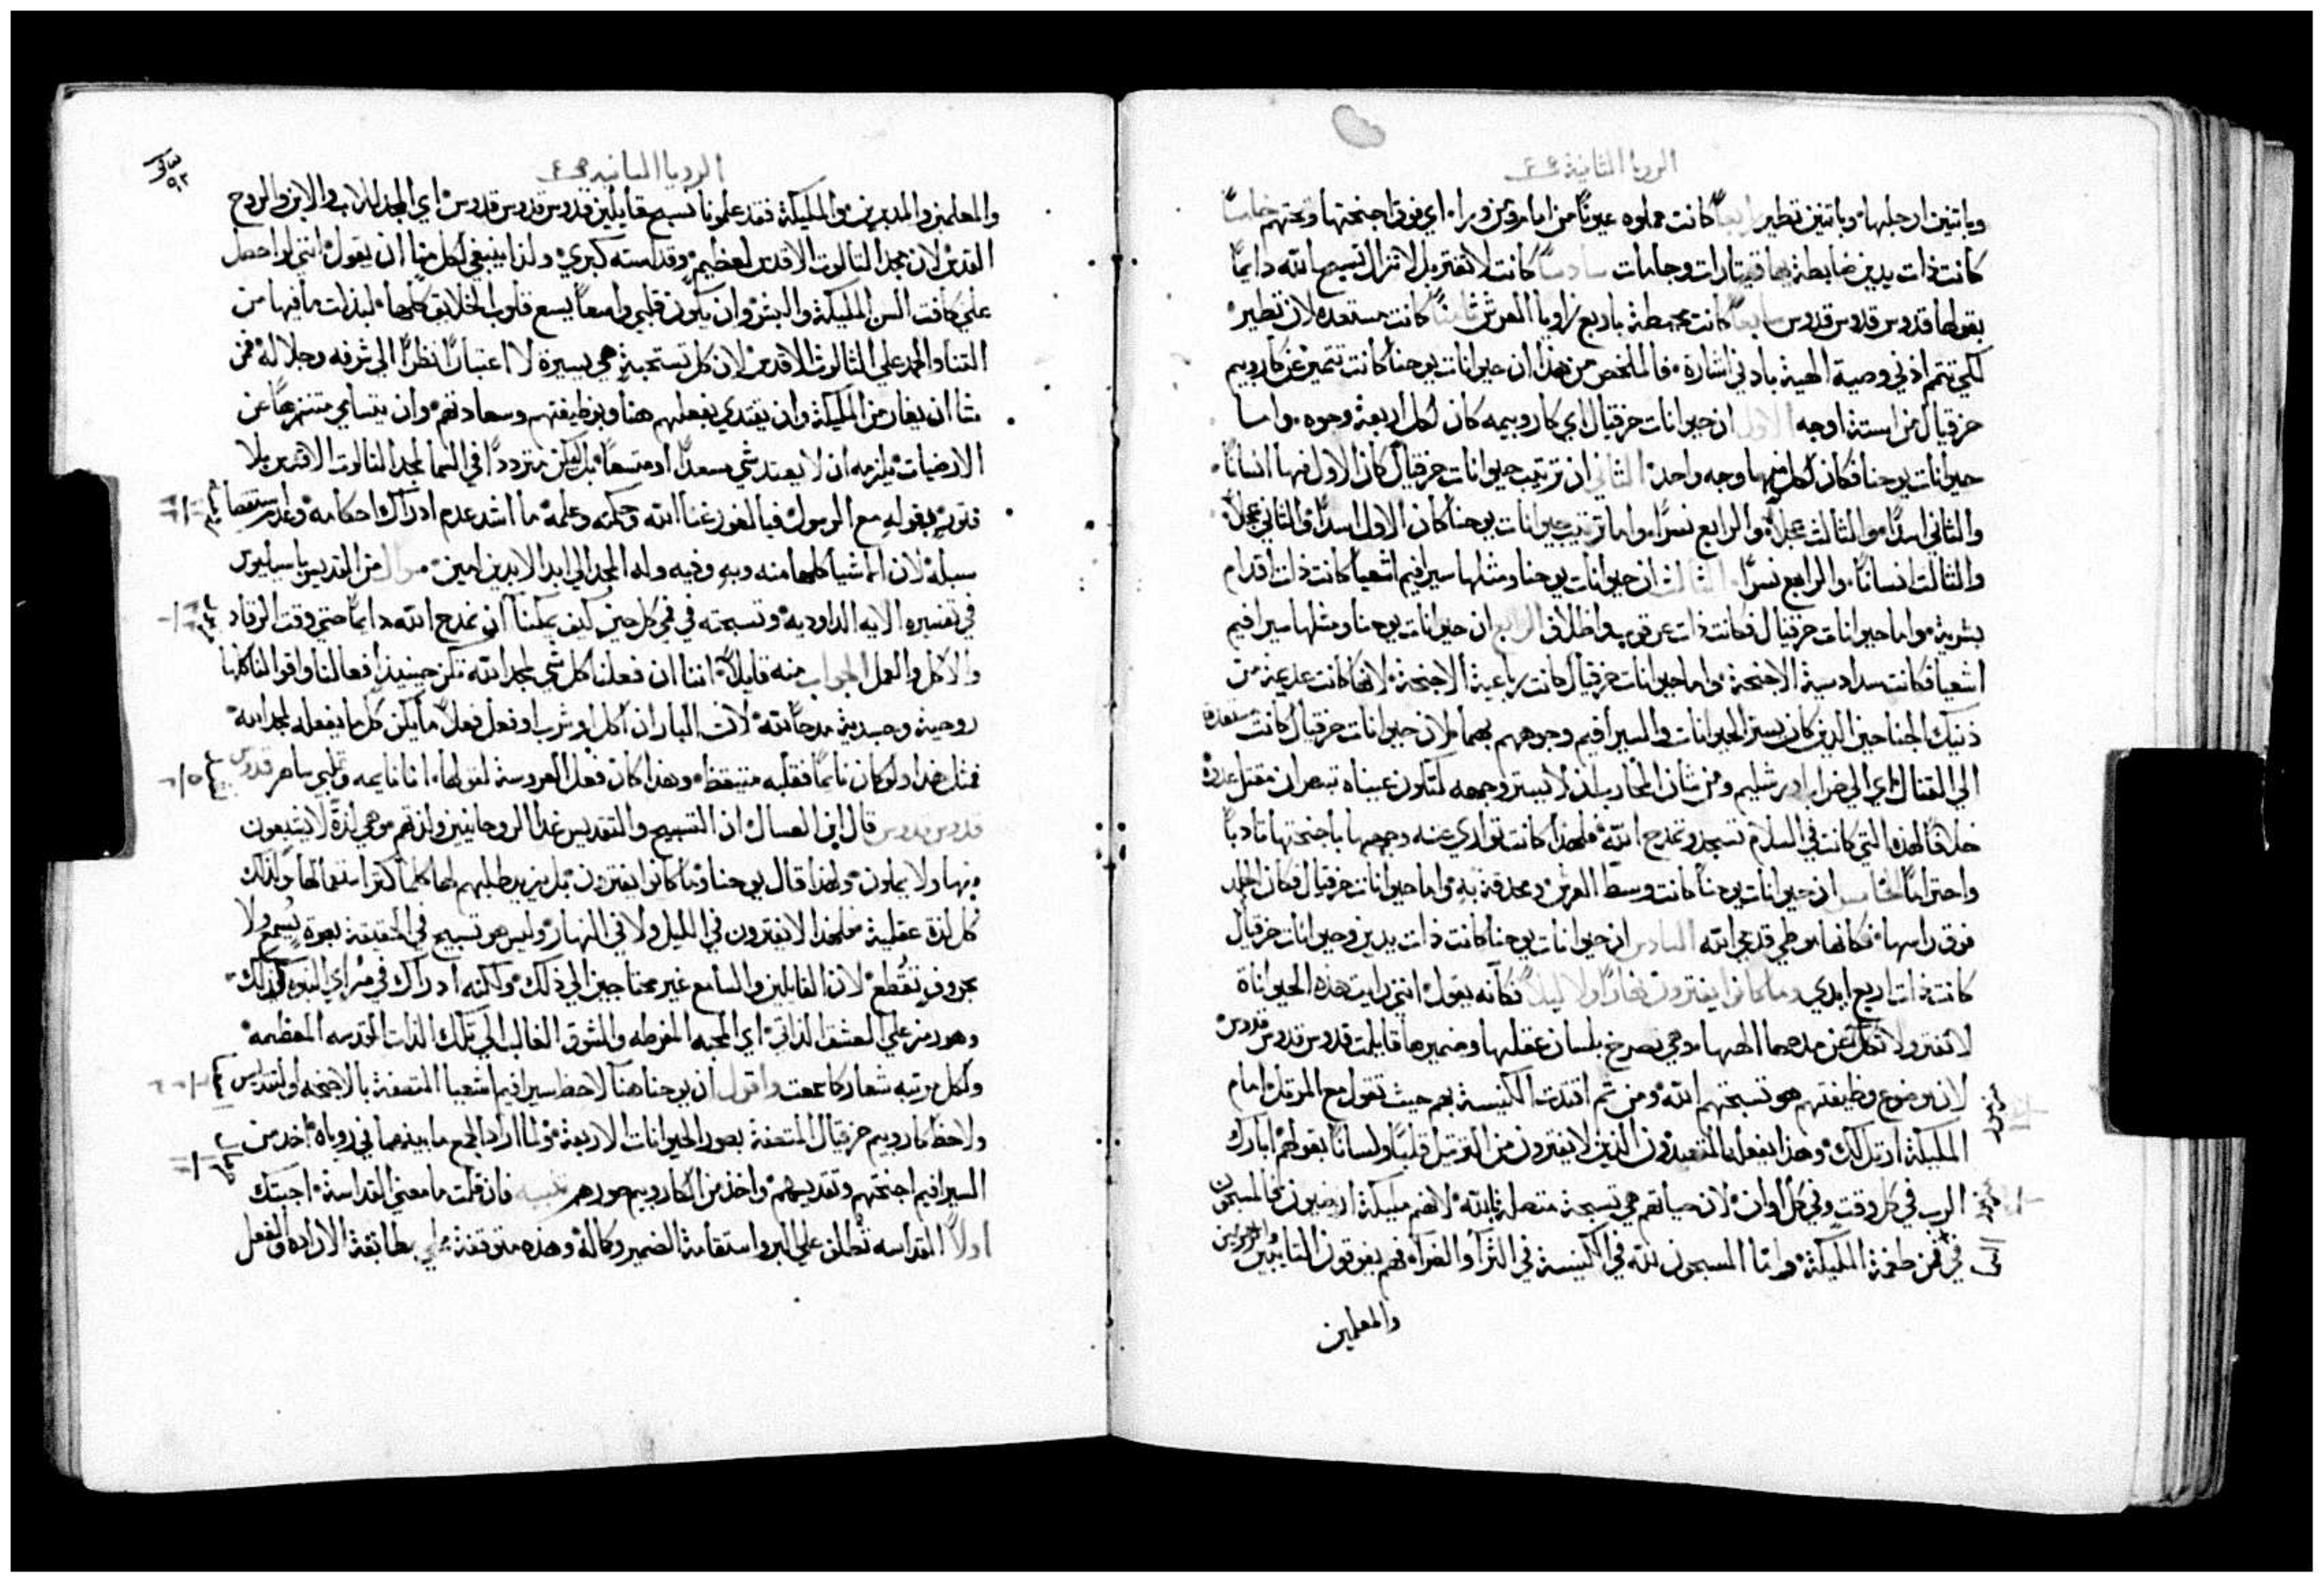 الرويا الثانية ص ٤
وباثنتين ارجلها وباثنتين تطير رابعاً كانت مملوه عيوناً من امام ومن وراء اي فوق اجنحتها وتحتهم خامساً
كانت ذات يدين ضابطة بهما قيتارات وجامات سادساً كانت لا تفتر بل لا تزال تسبح الله دايماً
بقولها قدوس قدوس قدوس سابعاً كانت محيطة باربع زوايا العرش ثامناً كانت مستعده لان تطير
لكي تتم ادني وصية الهية بادني اشارة فالملخص من هذا ان حيوانات يوحنا كانت تتميز عن كاروبيم
حزقيال من استة اوجه الاول ان حيوانات حزقيال اي كاروبيمه كان لكل اربعة وجوه واما
حيوانات يوحنا فكان لكل منها وجه واحد الثاني ان ترتيب حيوانات حزقيال كان الاول منها انساناً
والثاني اسداً والثالث عجلاً والرابع نسراً واما ترتيب حيوانات يوحنا كان الاول اسداً والثاني عجلاً
والثالث انساناً والرابع نسراً الثالث ان حيوانات يوحنا ومثلها سيرافيم اشعيا كانت ذات اقدام
بشرية واما حيوانات حزقيال فكانت ذات عرقوب واظلاف الرابع ان حيوانات يوحنا ومثلها سيرافيم
اشعيا فكانت سداسية الاجنحة واما حيوانات حزقيال كانت رباعية الاجنحة لانها كانت عديمة من
ذنيك الجناحين الذين كان يستر الحيوانات والسيرافيم وجوههم بهما لان حيوانات حزقيال كانت مستعدة
الي القتال اي الي خراب اورشليم ومن شان المحارب ان لا يستر وجهه لتكون عيناه تبصران مقتل عدوه
خلافاً لهذه التي كانت في السلام تسجد وتمدح الله فلهذا كانت تواري عنه وجهها باجنحتها تادباً
واحتراماً الخامس ان حيوانات يوحنا كانت وسط العرش ومحدقة به واما حيوانات حزقيال فكان الجلد
فوق راسها فكانها موطي قدمي الله السادس ان حيوانات يوحنا كانت ذات يدين وحيوانات حزقيال
كانت ذات اربع ايدي وما كانوا يفترون نهاراً ولا ليلاً فكانه يقول انني رايت هذه الحيواناة
لا تفتر ولا تكل عن مدحها الهها وهي تصرخ بلسان عقلها وضميرها قايلت قدوس قدوس قدوس
لان موضوع وظيفتهم هو تسبحتهم الله ومن ثم اقتدت الكنيسة بهم حيث تقول مع المرتل امام
المليكة ارتل لك وهذا يفعله المتعبدون الذين لا يفترون من الترتيل قلباً ولساناً بقولهم ابارك
الرب في كل وقت وفي كل اوان لان حياتهم هي تسبحة متصلة بالله لانهم مليكة ارضيون فالمسبحون
في من طغمة المليكة واما المسبحون لله في الكنيسة في الثرا والضراء فهم يفوقون
والمعلمين
الرويا الثانية ص ٤
والمعلمين والمدبرين والمليكة فقد علمونا تسبح قايلين قدوس قدوس قدوس اي المجد للاب والابن والروح
القدس لان مجد الثالوث الاقدس لعظيم وقداسته كبري ولذا ينبغي لكل منا ان يقول انني لو احصل
علي كافت السن المليكة والبشر وان يكون قلبي واسعاً يسع قلوب الخلايق كلها لبذلت ما فيها من
الثنا والحمد علي الثالوث الاقدس لان كل تسبحية هي يسيرة لا اعتبار نظراً الي شرفه وجلاله فمن
شا ان يغار من المليكة وان يقتدي بفعلهم هنا وبوظيفتهم وسعادتهم وان يتسامي متنزهاً عن
الارضيات يلزمه ان لا يعتد شي بل ليكن متردداً في السما لمجد الثالوث الاقدس بلا
فتور بقوله مع الرسول فيا لغور غنا الله وحكمته وعلمه ما اشد عدم ادراك احكامه وعدم استقصا
سبله لان الاشيا كلها منه وبه وفيه وله المجد الي ابد الابدين امين سوال من القديس باسيليوس
في تفسيره الايه الداوديه وتسبحته في فمي كل حين كيف يمكننا ان نمدح الله دايماً حتي وقت الرقاد
والاكل والعمل الجواب منه قايلاً اننا ان فعلنا كل شي لمجد الله تكن حينيذ افعالنا واقوالنا كلها
روحية وجسدية مدحاً لله لان البار ان اكل او شرب او فعل فعلاً ما يكن كل ما يفعله لمجد الله
فمثل هذا ولو كان نايماً فقلبه متيقظ وهذا كان فعل العروسة لقولها انا نايمه وقلبي ساهر قدوس
قدوس قدوس قال ابن العسال ان التسبيح والتقديس غذا الروحانيين ولذتهم هي لذة لا يشبعون
منها ولا يملون ولهذا قال يوحنا وما كانوا يفترون بل يزيد طلبهم لها كلما كثر استعمالها وكذلك
كل لذة عقلية فلهذا لا يفترون في الليل ولا في النهار وليس هو تسبيح في الحقيقة بصوت يُسمع ولا
بحروف تقطع لان القايلين والسامع غير محتاجين الي ذلك ولكنه ادراك في مراي النبوه كذلك
وهو رمز علي العشق الذاتي اي المحبه المفرطه والشوق الغالب الي تلك الذات القدسه العظيمه
ولكل مرتبه شعار كما سمعت واقول ان يوحنا هنا لاحظ سيرافيم اشعيا المتصفة بالاجنحه والتقديس
ولاحظ كاروبيم حزقيال المتصفة بصور الحيوانات الاربعة ولما اراد الجمع ما بينهما في روياه اخذ من
السيرافيم اجنحتهم وتقديسهم واخذ من الكاروبيم صورهم تنبيه فان قلت ما معني القداسة اجبتك
اولاً القداسه تطلق علي البر واستقامة الضمير وكماله وهذه متوقفة علي مطابقة الاراده والفعل